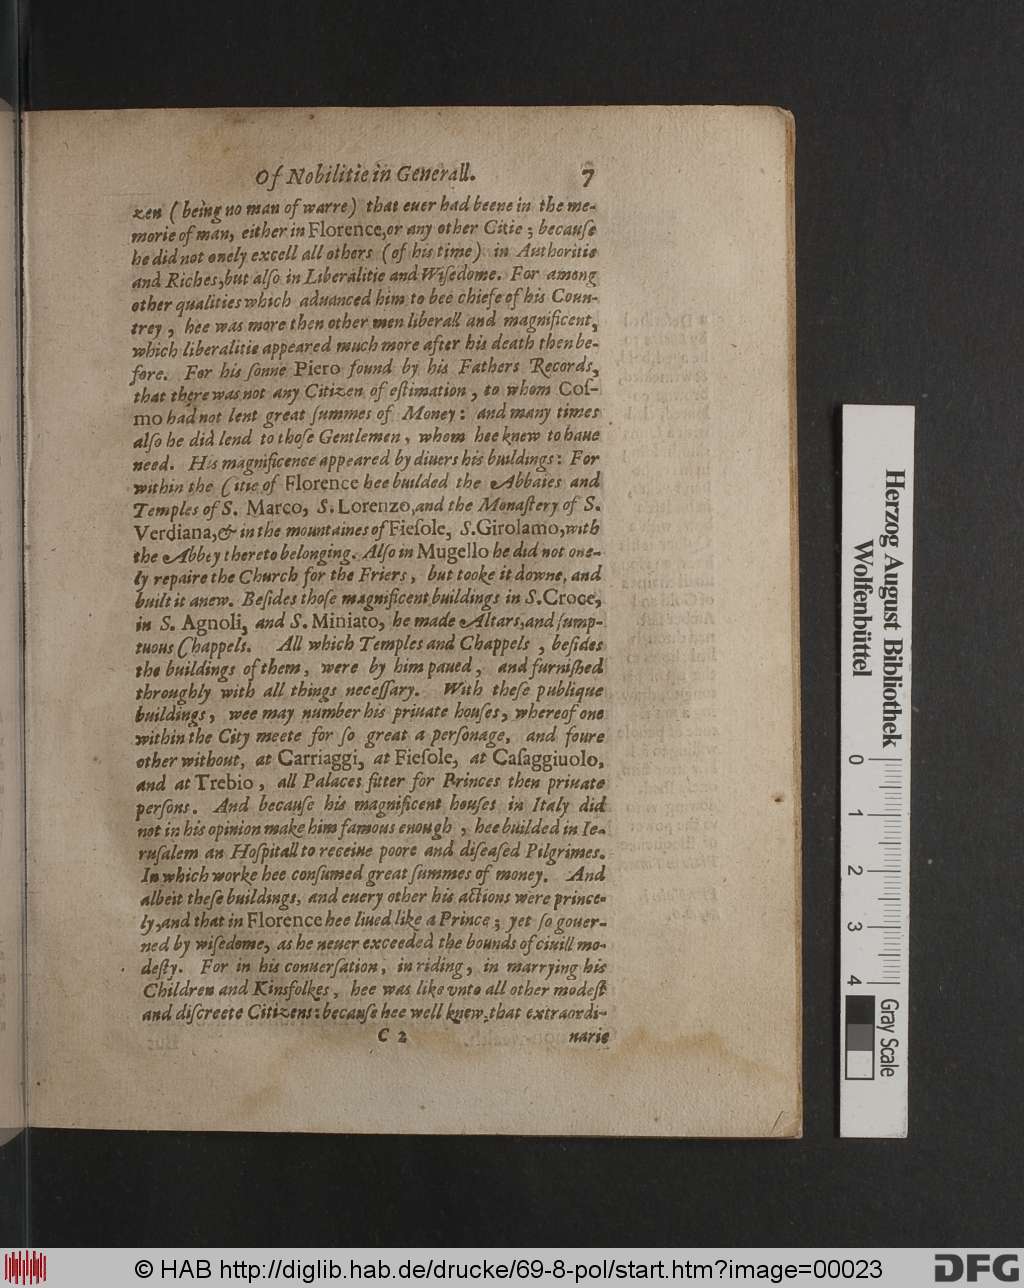 Of Nobilitie in Generall. 7
zen (being no man of warre) that euer had beene in the me-
morie of man, either in Florence, or any other Citie; becauſe
he did not onely excell all others (of his time) in Authoritie
and Riches, but alſo in Liberalitie and Wiſedome. For among
other qualities which aduanced him to bee chiefe of his Coun-
trey, hee was more then other men liberall and magnificent,
which liberalitie appeared much more after his death then be-
fore. For his ſonne Piero found by his Fathers Records,
that there was not any Citizen of eſtimation, to whom Coſ-
mo had not lent great ſummes of Money: and many times
alſo he did lend to thoſe Gentlemen, whom hee knew to haue
need. His magnificence appeared by diuers his buildings: For
within the Citie of Florence hee builded the Abbaies and
Temples of S. Marco, S. Lorenzo, and the Monaſtery of S.
Verdiana, & in the mountaines of Fieſole, S. Girolamo, with
the Abbey thereto belonging. Alſo in Mugello he did not one-
ly repaire the Church for the Friers, but tooke it downe, and
built it anew. Beſides thoſe magnificent buildings in S. Croce,
in S. Agnoli, and S. Miniato, he made Altars, and ſump-
tuous Chappels. All which Temples and Chappels, beſides
the buildings of them, were by him paued, and furniſhed
throughly with all things neceſſary. With theſe publique
buildings, wee may number his priuate houſes, whereof one
within the City meete for ſo great a perſonage, and foure
other without, at Carriaggi, at Fieſole, at Caſaggiuolo,
and at Trebio, all Palaces fitter for Princes then priuate
perſons. And becauſe his magnificent houſes in Italy did
not in his opinion make him famous enough, hee builded in Ie-
ruſalem an Hoſpitall to receiue poore and diſeaſed Pilgrimes.
In which worke hee conſumed great ſummes of money. And
albeit theſe buildings, and euery other his actions were prince-
ly, and that in Florence hee liued like a Prince; yet ſo gouer-
ned by wiſedome, as he neuer exceeded the bounds of ciuill mo-
deſty. For in his conuerſation, in riding, in marrying his
Children and Kinsfolkes, hee was like vnto all other modeſt
and diſcreete Citizens: becauſe hee well knew, that extraordi-
C 2 narie
Herzog August Bibliothek
Wolfenbüttel
0 1 2 3 4
Gray Scale
© HAB http://diglib.hab.de/drucke/69-8-pol/start.htm?image=00023
DFG